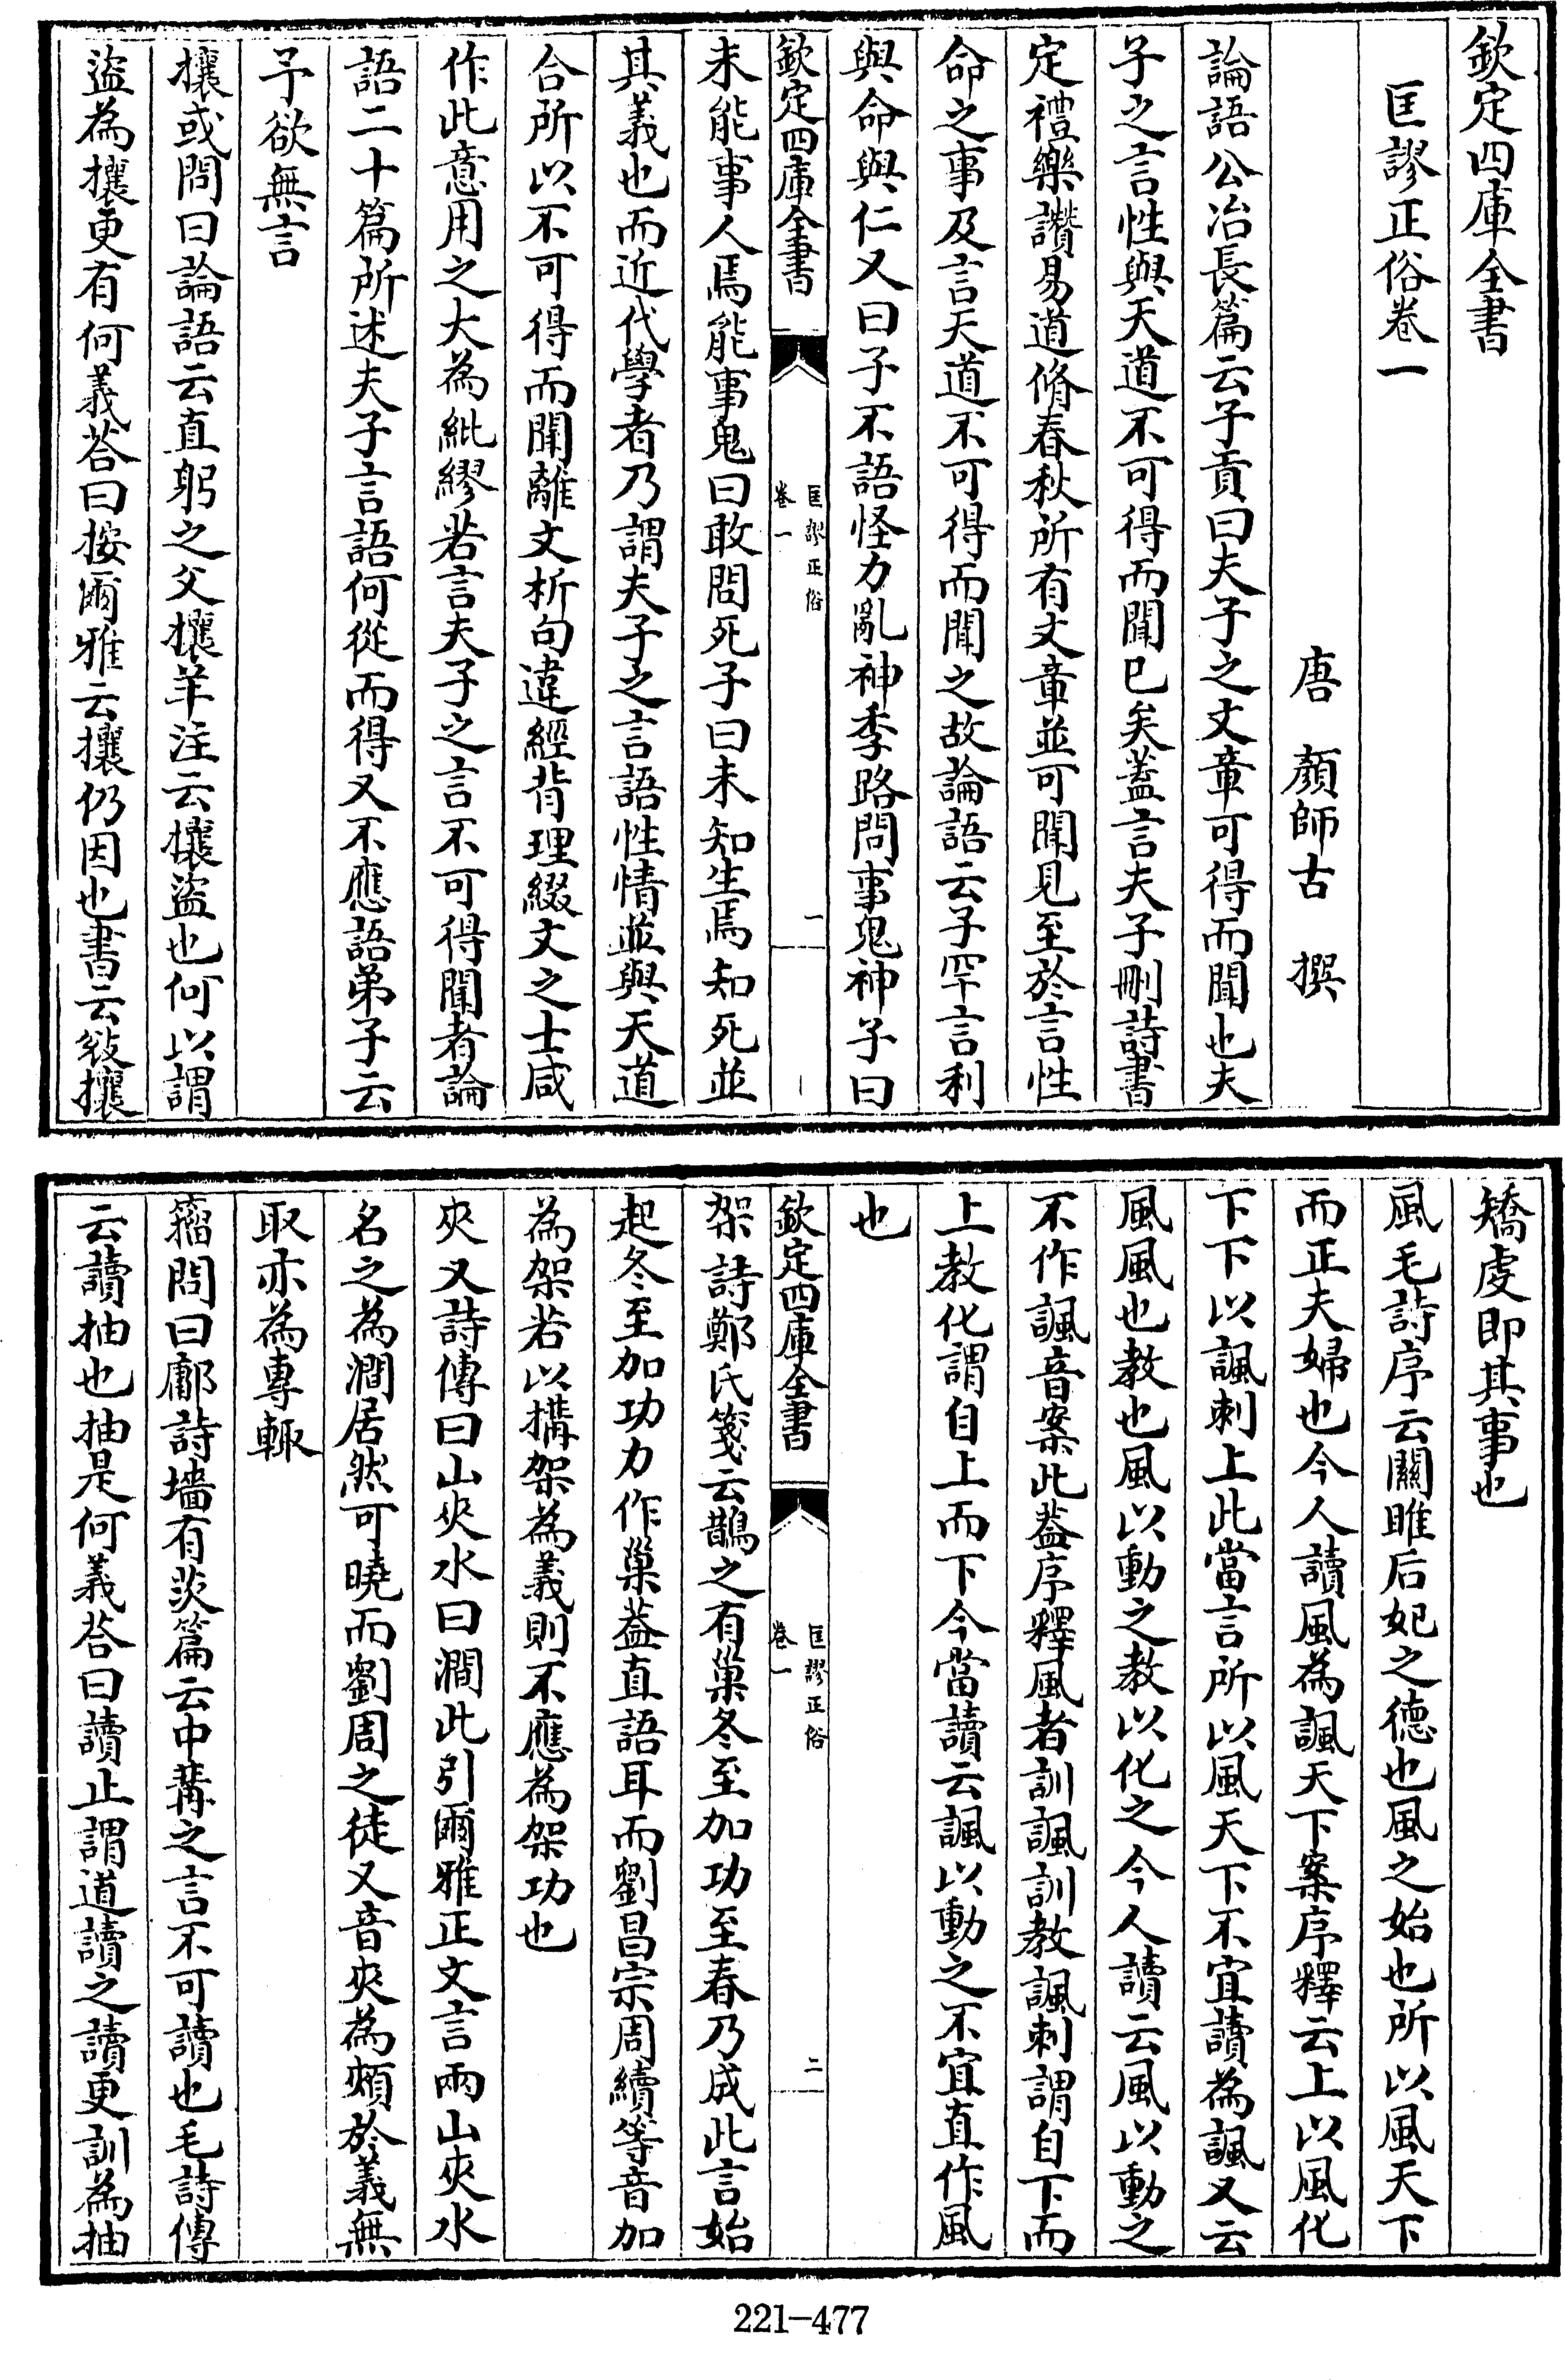 欽定四庫全書
匡謬正俗卷一
唐　顏師古　撰
論語公冶長篇云子貢曰夫子之文章可得而聞也夫
子之言性與天道不可得而聞已矣蓋言夫子刪詩書
定禮樂讚易道脩春秋所有文章並可聞見至於言性
命之事及言天道不可得而聞之故論語云子罕言利
與命與仁又曰子不語怪力亂神季路問事鬼神子曰
欽定四庫全書
匡謬正俗
卷一
一
未能事人焉能事鬼曰敢問死子曰未知生焉知死並
其義也而近代學者乃謂夫子之言語性情並與天道
合所以不可得而聞離文析句違經背理綴文之士咸
作此意用之大為紕繆若言夫子之言不可得聞者論
語二十篇所述夫子言語何從而得又不應語弟子云
予欲無言
攘或問曰論語云直躬之父攘羊注云攘盜也何以謂
盜為攘更有何義荅曰按爾雅云攘仍因也書云敓攘
矯虔即其事也
風毛詩序云關雎后妃之德也風之始也所以風天下
而正夫婦也今人讀風為諷天下案序釋云上以風化
下下以諷刺上此當言所以風天下不宜讀為諷又云
風風也教也風以動之教以化之今人讀云風以動之
不作諷音案此蓋序釋風者訓諷訓教諷刺謂自下而
上教化謂自上而下今當讀云諷以動之不宜直作風
也
欽定四庫全書
匡謬正俗
卷一
二
架詩鄭氏箋云鵲之有巢冬至加功至春乃成此言始
起冬至加功力作巢蓋直語耳而劉昌宗周續等音加
為架若以搆架為義則不應為架功也
夾又詩傳曰山夾水曰澗此引爾雅正文言兩山夾水
名之為澗居然可曉而劉周之徒又音夾為頰於義無
取亦為專輒
籀問曰鄘詩墻有茨篇云中冓之言不可讀也毛詩傳
云讀抽也抽是何義荅曰讀止謂道讀之讀更訓為抽
221-477